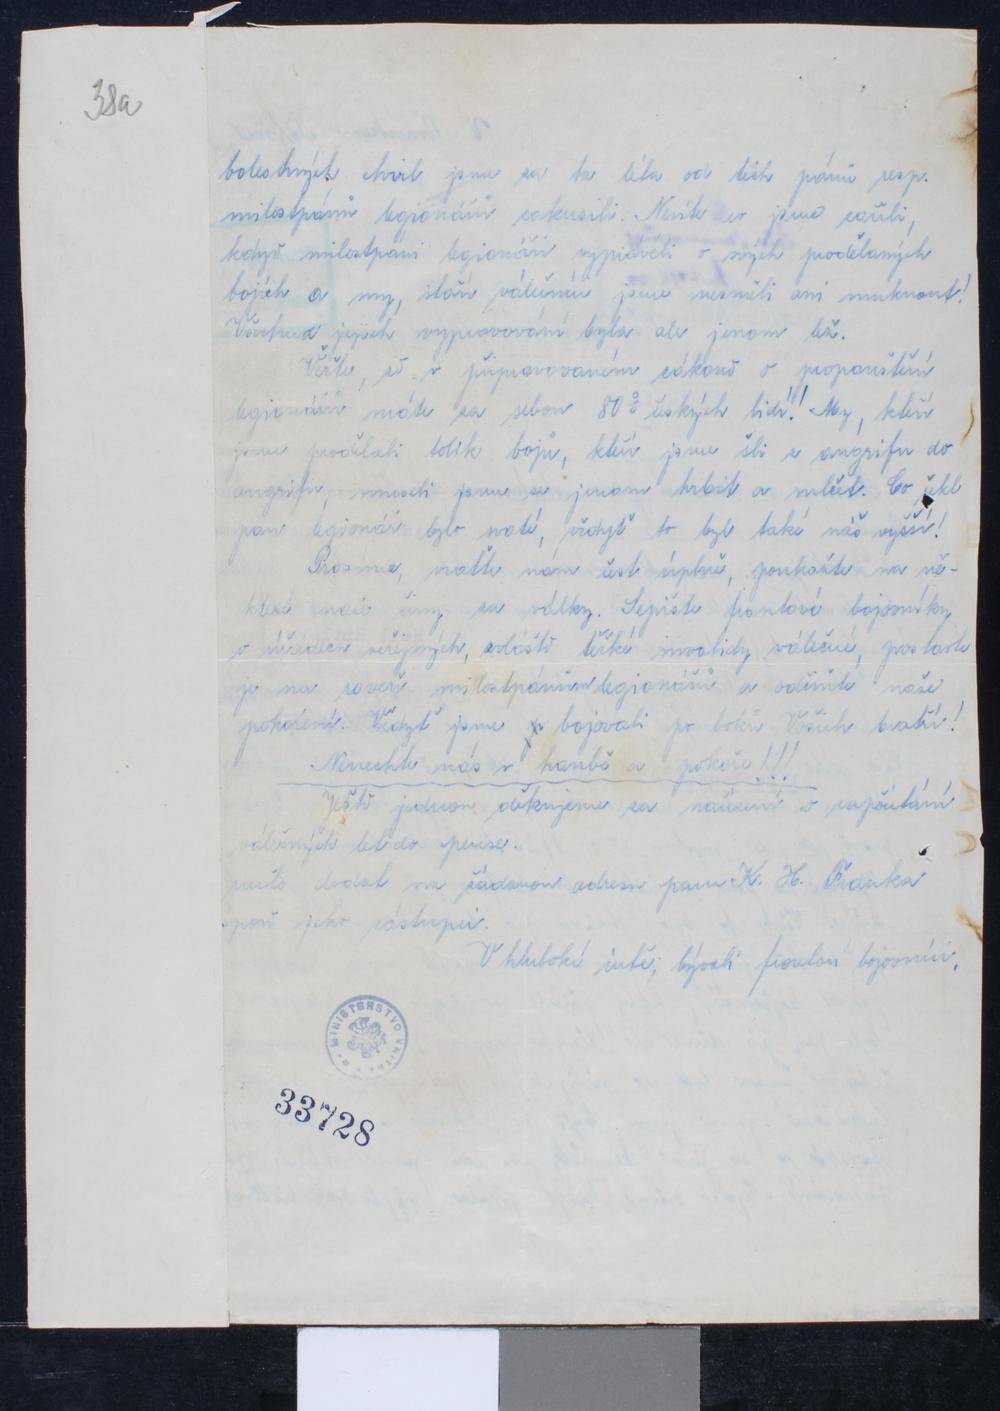 38a
bolestných chvil jsme za ta léta od těch pánů resp.
milostpánů legionářů zakusili. Nevíte co jsme zažili,
když milostpáni legionáři vyprávěli o svých prodělaných
bojích a my, staří válečníci jsme nesměli ani muknout!
Všechna jejich vypravování byla ale jenom lež.
Věřte, že v připravovaném zákoně o propouštění
legionářů máte za sebou 80% českých lidí! My, kteří
jsme prodělali tolik bojů, kteří jsme šli z angrifu do
angrifu, museli jsme se jenom hrbit a mlčet. Co řekl
pan legionář bylo svaté, vždyť to byl také náš vyšší!
Prosíme, vraťte nám čest úplně, poukažte na ně-
které naše činy za války. Sepište frontové bojovníky
v úřadech veřejných, zvláště těžké invalidy válečné, postavte
je na roveň milostpánům legionářů a odčiňte naše
pokoření. Vždyť jsme bojovali po boku Vašich bratří!
Nenechte nás v hanbě a pokoře!!!
Ještě jednou děkujeme za nařízení o započítání
válečných let do pense.
dodat na žádanou adresu pana K. H. Franka
jeho zástupci.
V hluboké úctě, bývalí frontoví bojovníci.
MINISTERSTVO VNITRA
33728